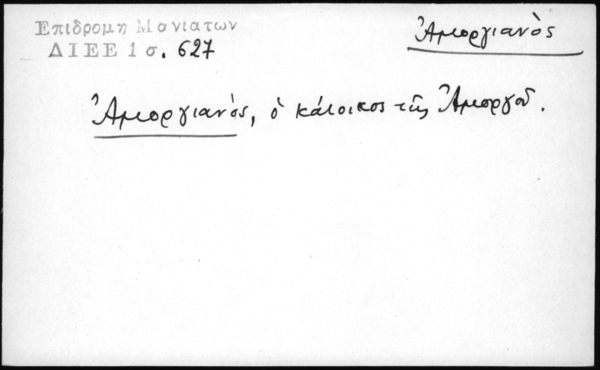 Επιδρομη Μανιατων
ΔΙΕΕ 1 σ. 627
Ἀμοργιανὸς
Ἀμοργιανὸς, ὁ κάτοικος τῆς Ἀμοργοῦ.